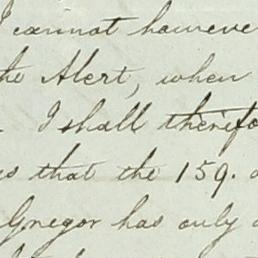 I cannot howeve
the Alert, when
I shall therefo
s that the 159.
Gregor has only